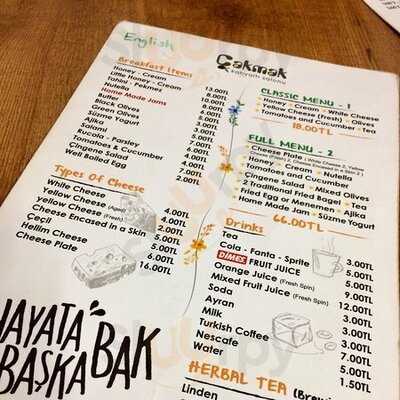 English
Çakmak
kahvaltı salonu
Breakfast Items
Honey - Cream 13.00TL
Little Honey - Cream 8.00TL
Tahini - Pekmez 10.00TL
Nutella 6.00TL
Home Made Jams
Butter
Black Olives
Green Olives
Süzme Yogurt
Ajika
Salami
Rucola - Parsley
Tomatoes & Cucumber
Çingene Salad
Well Boiled Egg 2.00TL
Types Of Cheese
White Cheese 4.00TL
Yellow Cheese 4.00TL
yellow Cheese (Aged) 2.00TL
Cheese Encased in a Skin 5.00TL
Çeçil 5.00TL
Hellim Cheese 6.00TL
Cheese Plate 16.00TL
HAYATA
BAŞKA BAK
CLASSIC MENU - 1
Honey Cream White Cheese
Yellow Cheese (Fresh) Olives
Tomatoes and Cucumber Tea
18.00TL
FULL MENU - 2
Cheese Plate
Honey Cream Nutella
Tomatoes and Cucumber
Çingene Salad Mixed Olives
2 Traditional Fried Bagel Tea
Fried Egg or Menemen Ajika
Home Made Jam Süzme Yogurt
66.00TL
Drinks
Tea 3.00TL
Cola - Fanta - Sprite 5.00TL
DİMES FRUIT JUICE 5.00TL
Orange Juice (Fresh Spin) 9.00TL
Mixed Fruit Juice (Fresh Spin) 12.00TL
Soda 3.00TL
Ayran 3.00TL
Milk 3.00TL
Turkish Coffee 7.00TL
Nescafe 5.00TL
Water 1.50TL
HERBAL TEA
Linden 5.00TL